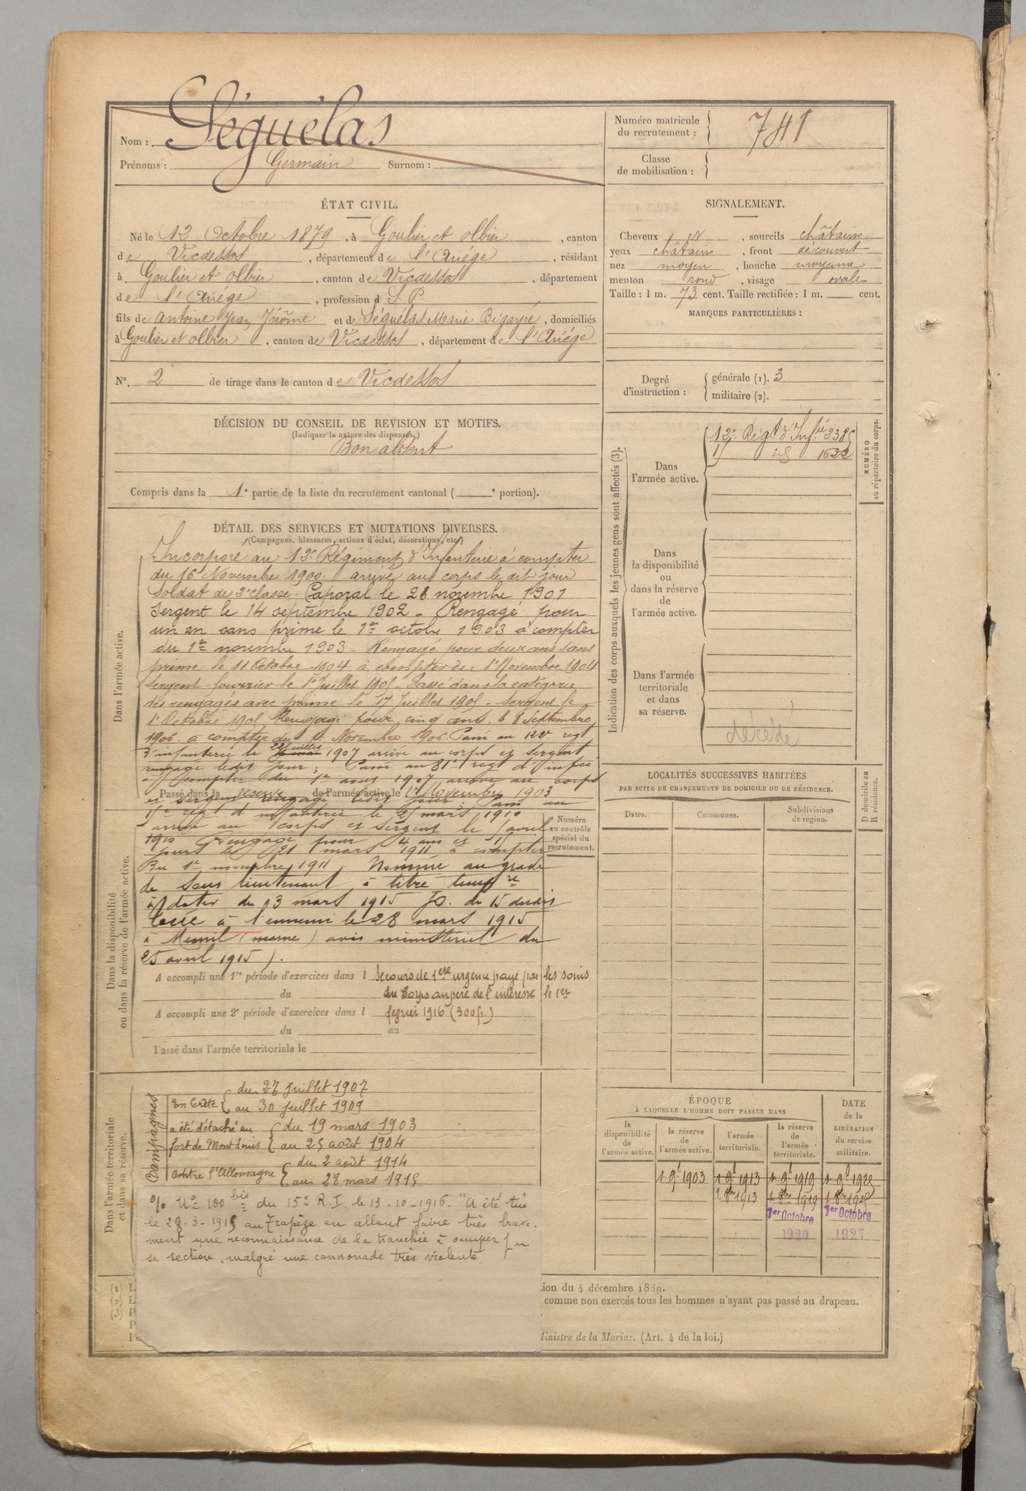 Nom : Séguélas
Prénoms : Germain Surnom :
Numéro matricule du recrutement : 741
Classe de mobilisation :
ÉTAT CIVIL.
Né le 12 Octobre 1879, à Goulier et Olbier, canton
de Vicdessos, département de l'Ariége, résidant
à Goulier et Olbier, canton de Vicdessos, département
de l'Ariége, profession d S.P.
fils de Antoine Jean Jérôme et de Séguélas Marie Bigayré, domiciliés
à Goulier et Olbier, canton de Vicdessos, département de l'Ariége
N° 2 de tirage dans le canton de Vicdessos
SIGNALEMENT.
Cheveux id, sourcils châtains
yeux châtains, front découvert
nez moyen, bouche moyenne
menton rond, visage ovale
Taille : 1 m. 73 cent. Taille rectifiée : 1 m. cent.
MARQUES PARTICULIÈRES :
Degré d'instruction : générale (1). 3
militaire (2).
DÉCISION DU CONSEIL DE REVISION ET MOTIFS.
(Indiquer la nature des dispenses.)
Bon absent
Compris dans la 1e partie de la liste du recrutement cantonal ( e portion).
DÉTAIL DES SERVICES ET MUTATIONS DIVERSES.
(Campagnes, blessures, actions d'éclat, décorations, etc.)
Dans l'armée active.
Incorporé au 12e Régiment d'Infanterie à compter
du 16 Novembre 1900. arrivé au corps le dit jour
Soldat de 2e classe. Caporal le 28 novembre 1901
Sergent le 14 septembre 1902. Rengagé pour
un an sans prime le 1er octobre 1903 à compter
du 1er novembre 1903. Rengagé pour deux ans sans
prime le 11 Octobre 1904 à compter du 1er Novembre 1904
Sergent-fourrier le 1er Juillet 1905. Passé dans la catégorie
des rengagés avec prime le 17 Juillet 1905. Sergent le
1er Octobre 1905 Rengagé pour cinq ans le 8 Septembre
1906 à compter du 1er Novembre 1906. Passé au 122e regt
d'infanterie le 1907 arrivé au corps et sergent
rengagé ledit jour; Passé au 81e regt d'infie
à compter du 1er août 1907, arrivé au corps
Passé dans la réserve de l'armée active le 1er Novembre 1903
et sergent rengagé ledit jour. Passé au
regt d'infanterie le 29 mars 1910
arrivé au corps et sergent le 1 avril
1910 Rengagé pour 4 ans et
jours le 21 mars 1911 à compter
Du 1er novembre 1911. Nommé au grade
de Sous lieutenant à titre tempre
à dater du 13 mars 1915 JO. du 15 dudit
Tué à l'ennemi le 28 mars 1915
à Mesnil (marne) avis ministériel du
25 avril 1915).
Dans la disponibilité ou dans la réserve de l'armée active.
Numéro au contrôle spécial du recrutement.
A accompli une 1re période d'exercices dans l
du
Secours de 1ère urgence payé par les soins
du Corps au père de l'intéressé le 1er
février 1916 (300f.)
A accompli une 2e période d'exercices dans l
du au
Passé dans l'armée territoriale le
Dans l'armée territoriale et dans sa réserve.
Campagnes
En Crète du 27 juillet 1907
au 30 juillet 1909
a été détaché au fort de Mont Louis du 19 mars 1903
au 25 août 1904
Contre l'Allemagne du 2 août 1914
au 28 mars 1915
O/o N° 100 bis du 15e R.I. le 13-10-1916. "A été tué
le 28-3-1915 au Trapèze en allant faire très brave-
ment une reconnaissance de la tranchée à occuper par
sa section, malgré une canonnade très violente
Indication des corps auxquels les jeunes gens sont affectés (3).
Dans l'armée active.
12e Régt d'Infie 2385
id 1622
NUMÉRO au répertoire du corps.
Dans la disponibilité ou dans la réserve de l'armée active.
Dans l'armée territoriale et dans sa réserve.
décédé
LOCALITÉS SUCCESSIVES HABITÉES
PAR SUITE DE CHANGEMENTS DE DOMICILE OU DE RÉSIDENCE.
Dates. Communes. Subdivisions de région. D domicile ou R résidence.
ÉPOQUE
À LAQUELLE L'HOMME DOIT PASSER DANS
la disponibilité de l'armée active. la réserve de l'armée active. l'armée territoriale. la réserve de l'armée territoriale.
DATE de la LIBÉRATION du service militaire.
1 9bre 1903 1 9bre 1913 1 9bre 1919 1 9bre 1925
1er Octobre 1920 1er Octobre 1927
ion du 4 décembre 1889.
comme non exercés tous les hommes n'ayant pas passé au drapeau.
Ministre de la Marine. (Art. 4 de la loi.)